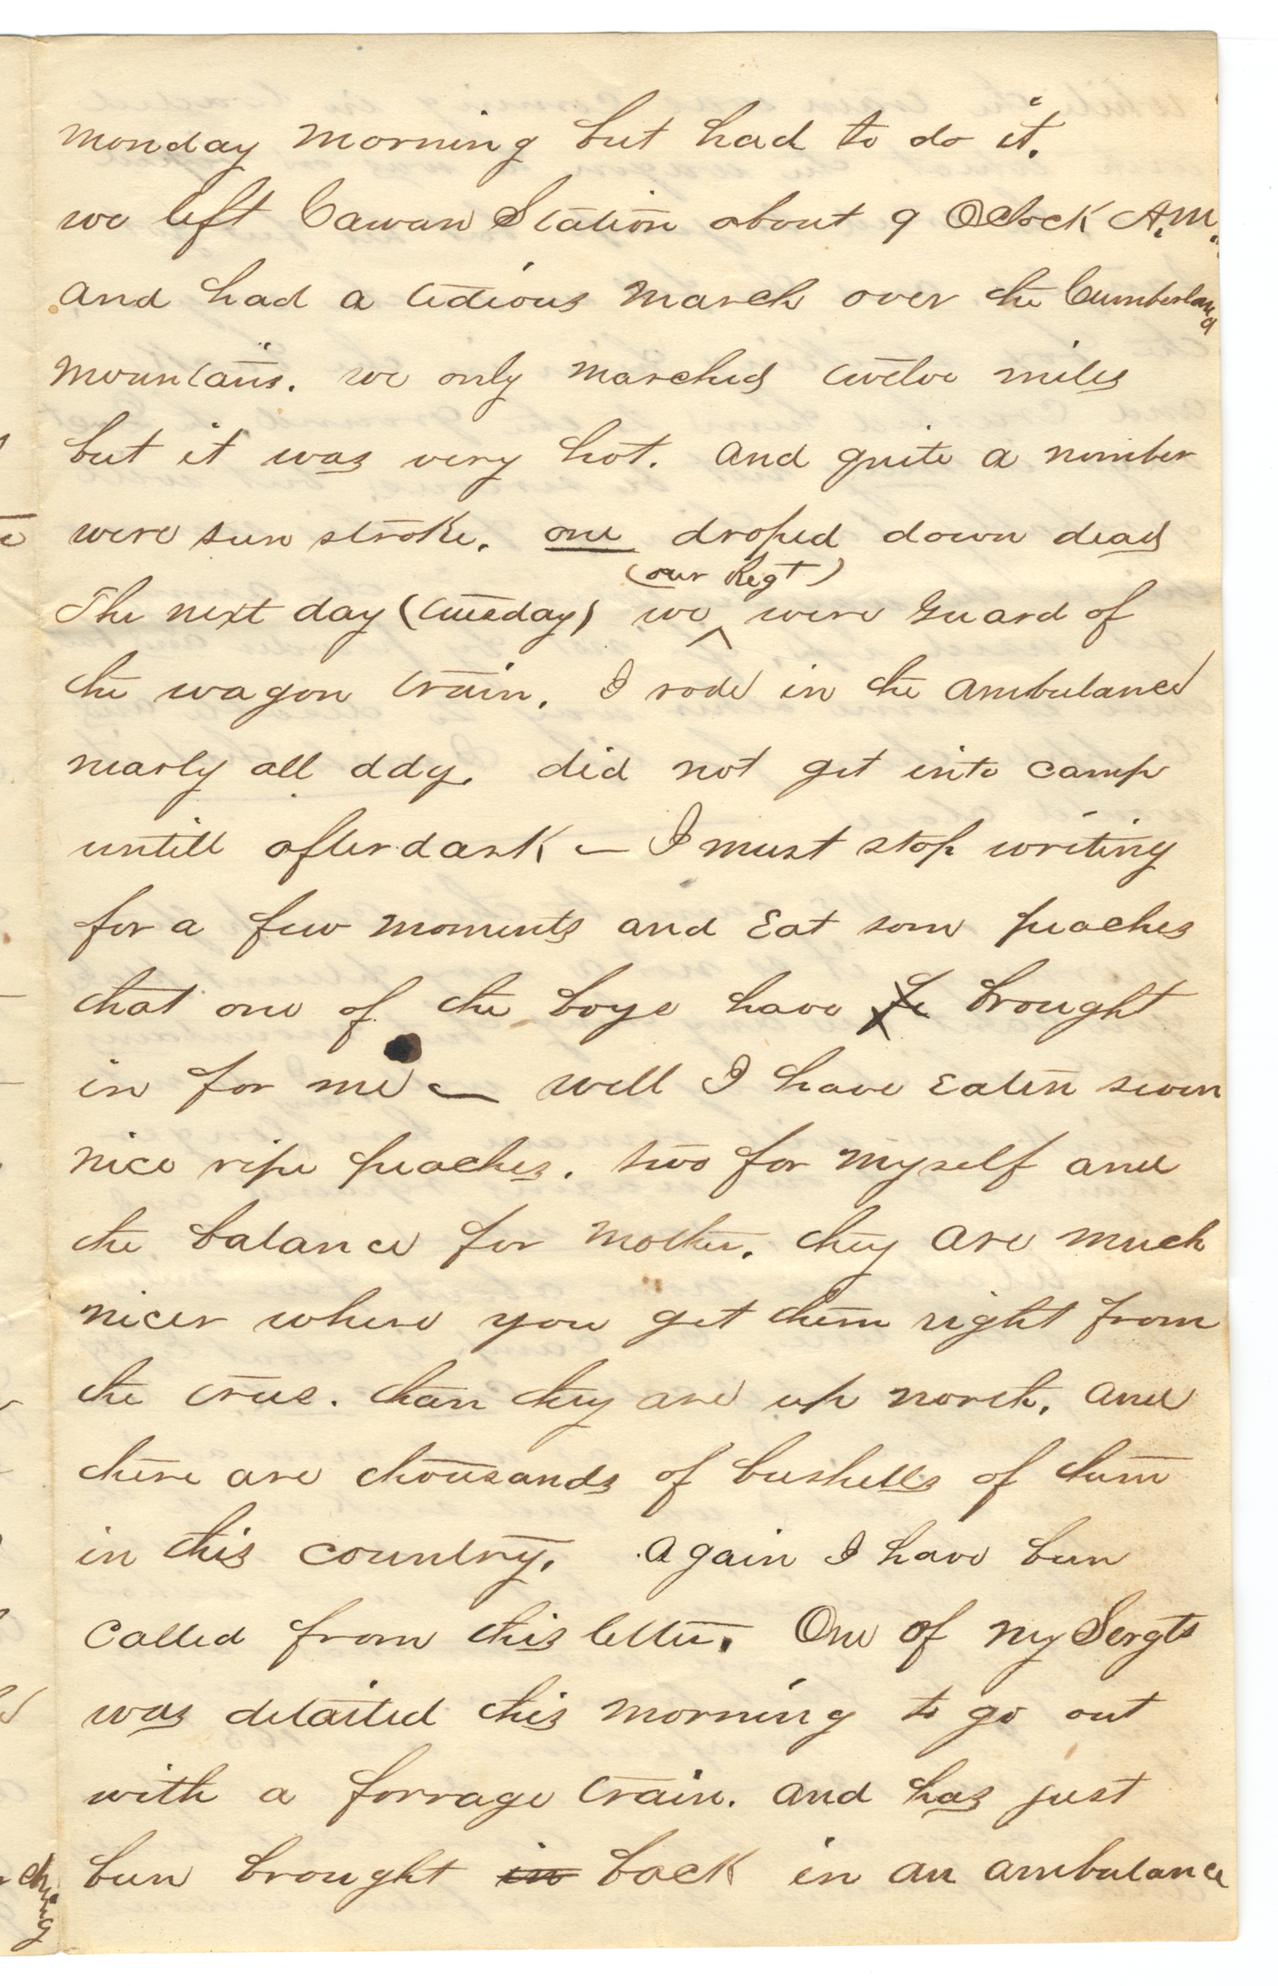 monday morning but had to do it.
we left Cawan Station about 9 Oclock A.M.
and had a tedious march over the Cumberland
mountains. we only marched twelve miles
but it was very hot. and quite a number
were sun stroke. one droped down dead
(our Regt)
The next day (tuesday) we ^ were Guard of
the wagon train. I rode in the ambulance
nearly all ddy. did not get into camp
untill after dark — I must stop writing
for a few moments and Eat som peaches
that one of the boys have brought
in for me — well I have Eaten seven
nice ripe peaches. two for myself and
the balance for mother. they are much
nicer where you get them right from
the trees. than they are up north. and
there are thousands of bushells of them
in this country. Again I have been
called from this letter. One of my Sergts
was detailed this morning to go out
with a forrage train. and has just
been brought in back in an ambulance